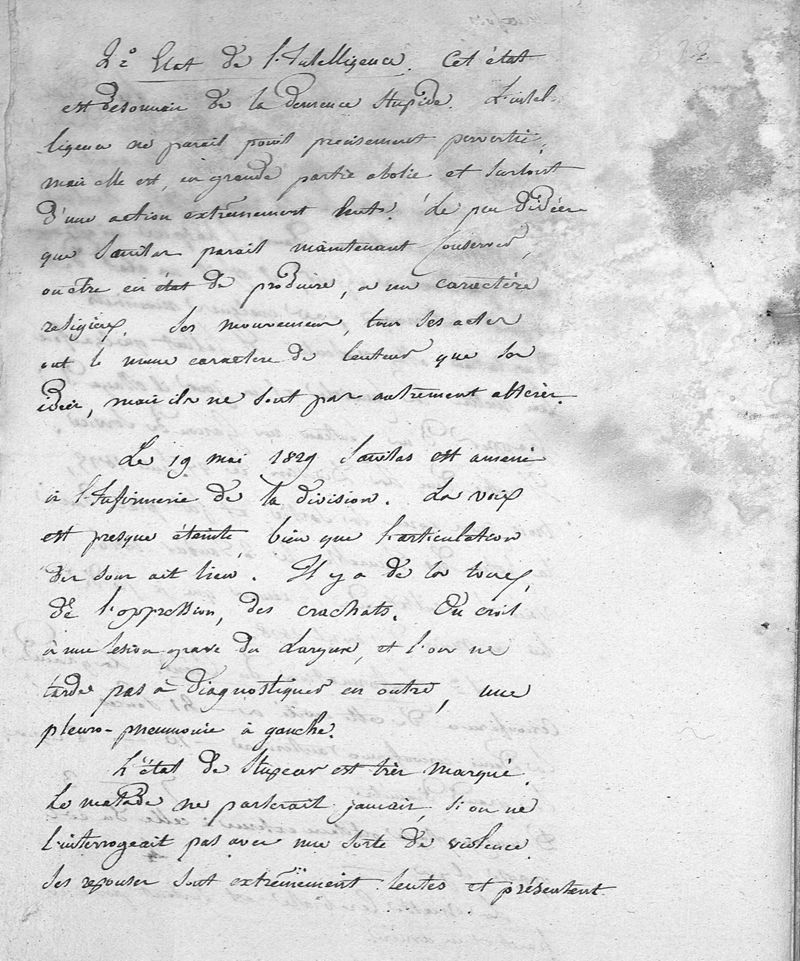 2° Etat de l'Intelligence. Cet état
est désormais de la démence stupide. L'intel-
ligence ne parait point precisement pervertie,
mais elle est, en grande partie abolie et surtout
d'une action extrêmement lente. Le peu d'idées
que parait maintenant conserver,
ou être en état de produire, a un caractére
religieux. Ses mouvemens, tous ses actes
ont le meme caractere de lenteur que ses
idées, mais ils ne sont pas autrement altérés.
Le 19 mai 1829 est amené
à l'Infirmerie de la division. La voix
est presque éteinte, bien que l'articulation
des sons ait lieu. Il y a de la toux,
de l'oppression, des crachats. On croit
à une lesion grave du Larynx, et l'on ne
tarde pas à diagnostiquer en outre, une
pleuro-pneumonie à gauche.
L'état de stupeur est très marqué.
Le malade ne parlerait jamais, si on ne
l'interrogeait pas avec une sorte de violence.
Ses reponses sont extrêmement lentes et présentent